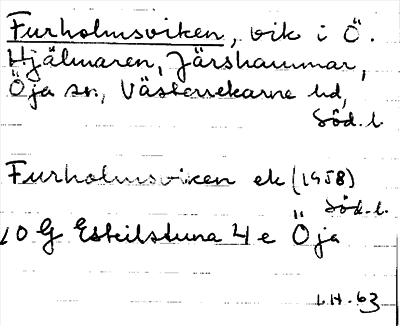 Furholmsviken, vik i Ö.
Hjälmaren, Järshammar,
Öja sn, Västerrekarne hd,
Söd.l.
Furholmsviken ek (1958)
Söd.l.
10 G Eskilstuna 4 e Öja
I.H. 63